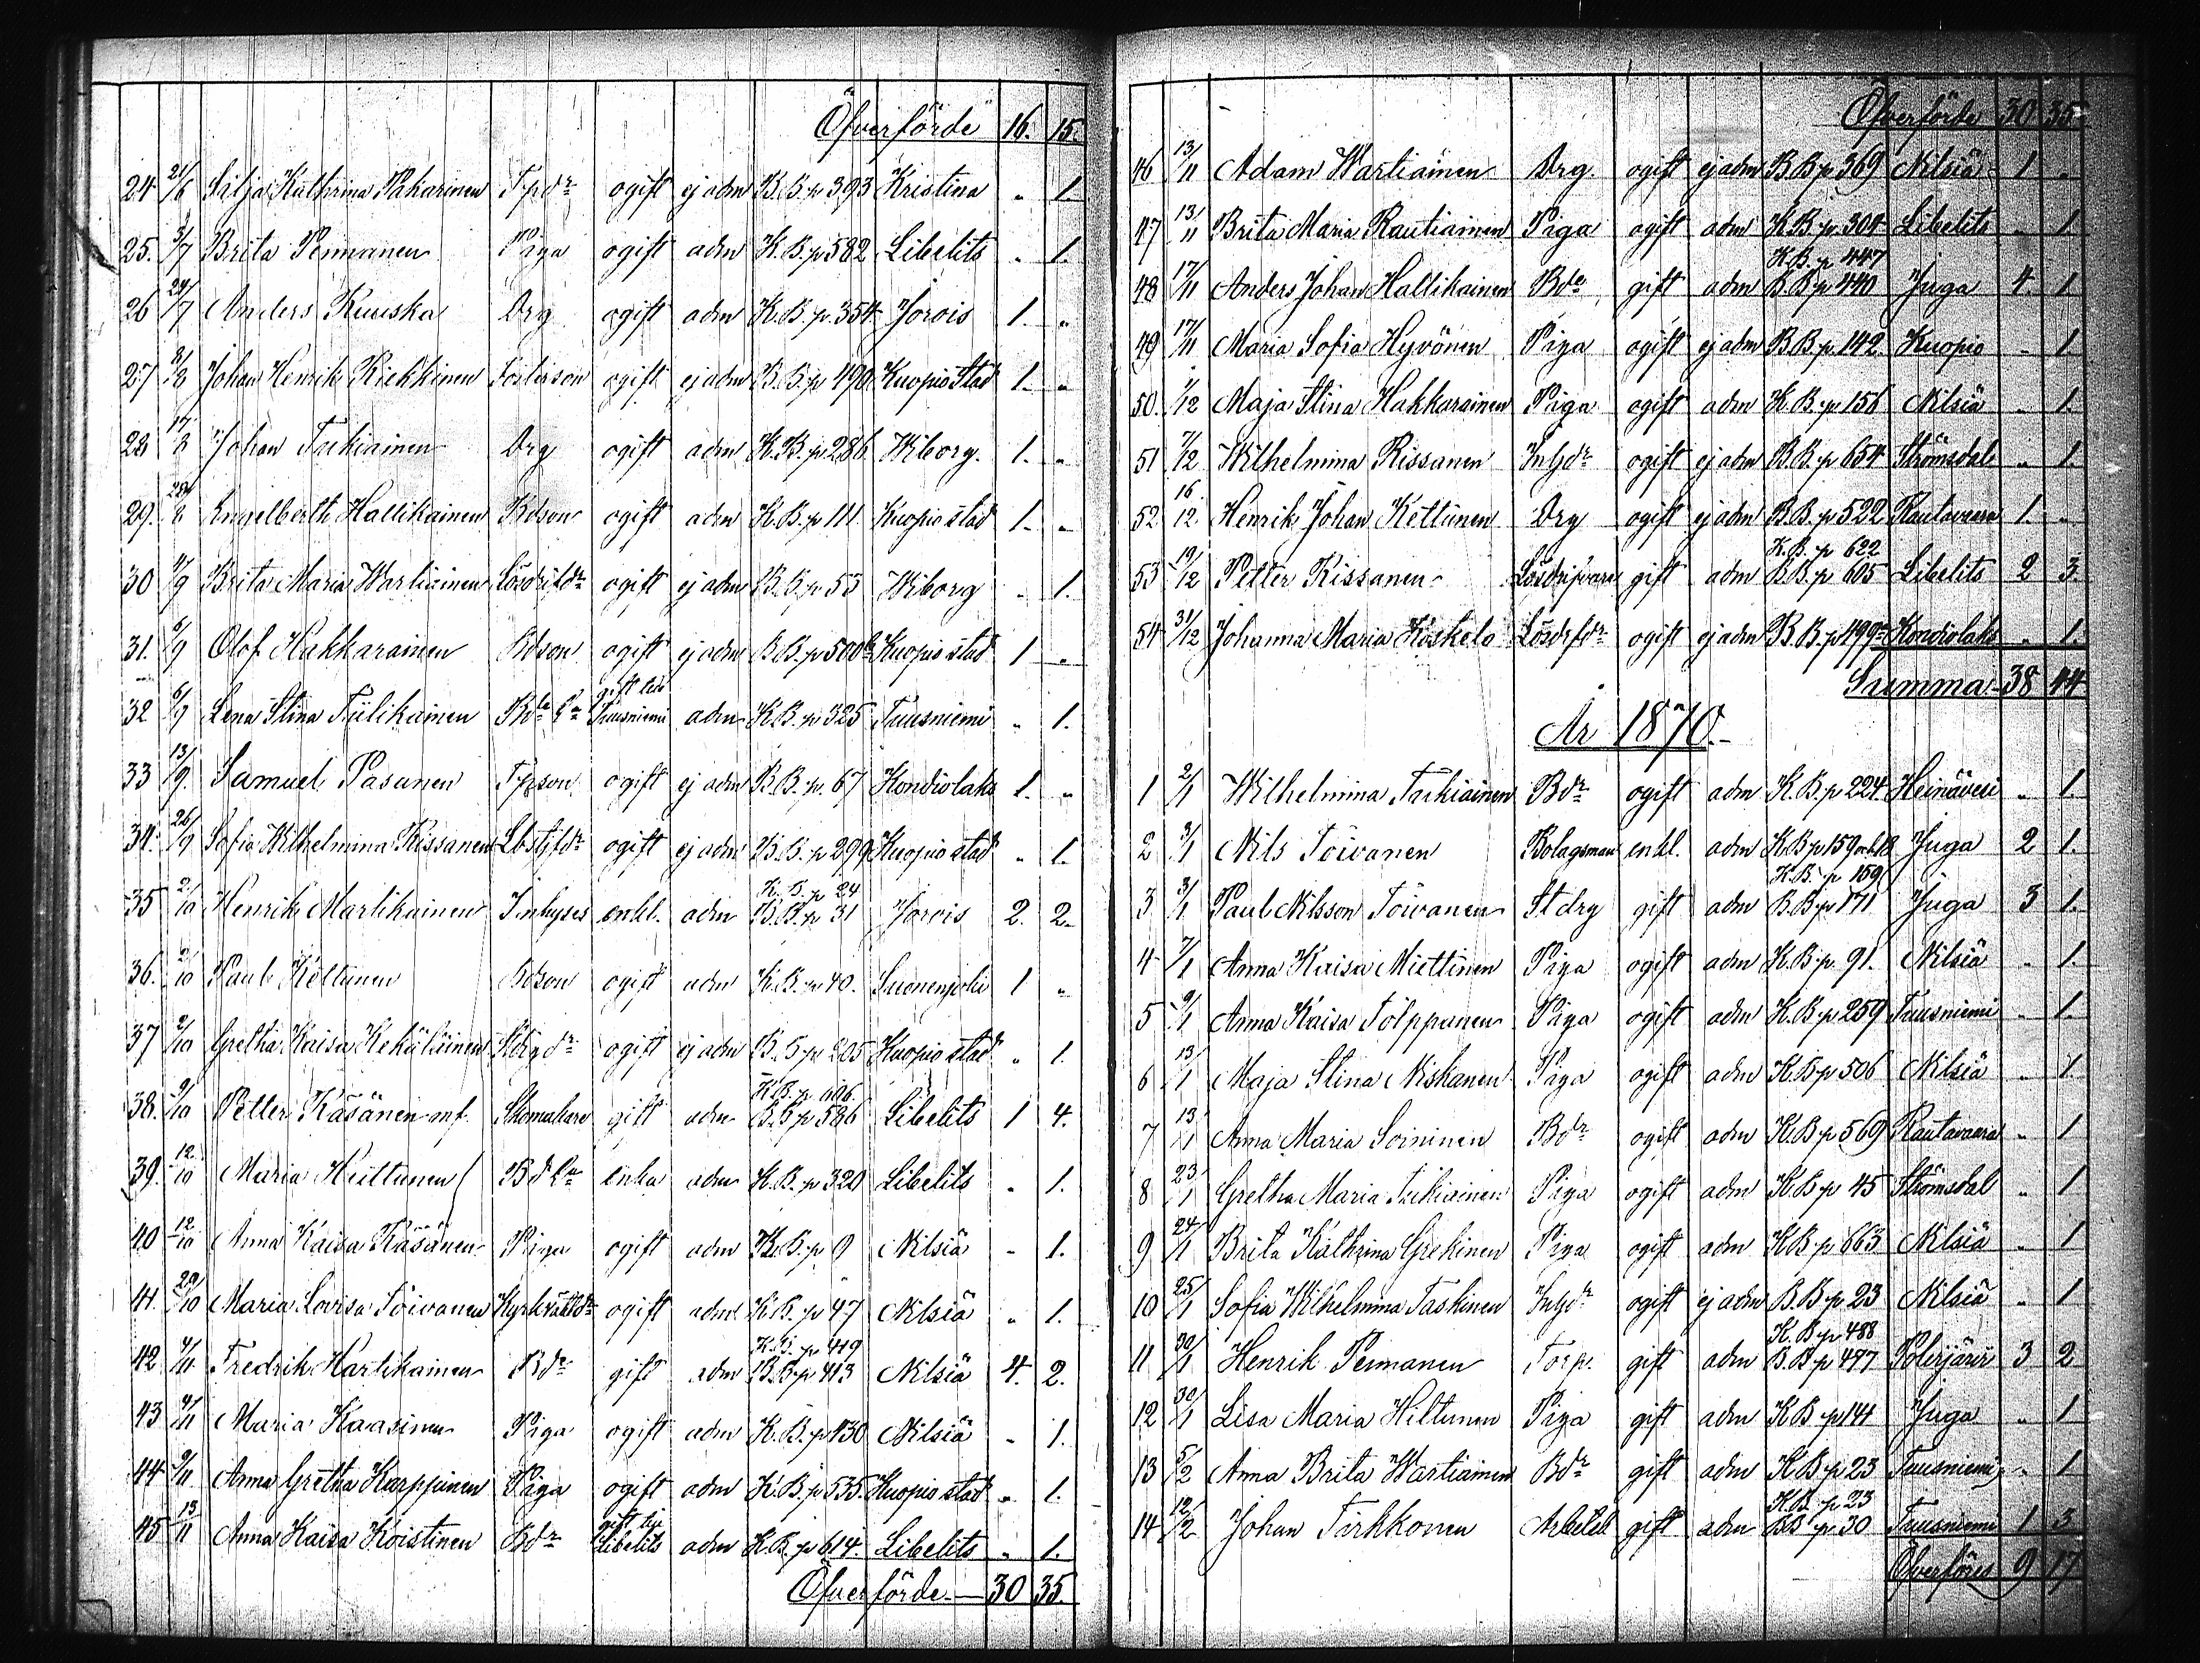 Öfverförde 16. 15.
24 21/6 Silja Kathrina Pakarinen Tpdr ogift ej adm B.B. p 393 Kristina " 1.
25. 3/7 Brita Pennanen Piga ogift adm K.B. p 582 Libelits " 1.
26 24/7 Anders Kuuska Drg ogift adm K.B. p. 354 Jorois 1. "
27 3/8 Johan Henrik Kiekkinen ogift ej adm B.B. p 490 Kuopio stad 1. "
28 17/8 Johan Tackiainen Drg ogift adm K.B. p 286 Wiborg. 1. "
29. 28/8 Engelberth Hallikainen Bdson ogift adm K.B. p 111 Kuopio stad 1. "
30 4/9 Brita Maria Wartiainen Lösdrifdr ogift ej adm B.B. p 53 Wiborg " 1.
31. 6/9 Olof Hakkarainen Bdson ogift ej adm B.B. p 500 Kuopio stad 1 "
gift till
32 6/9 Lena Stina Tiilikainen Tuusniemi adm K.B. p 325 Tuusniemi " 1.
33 13/9. Samuel Pasanen Tpson ogift ej adm B.B. p. 67 Kondiolaks 1. "
34. 26/9 Sofia Wilhelmina Rissanen ogift ej adm B.B. p 299 Kuopio stad " 1.
K.B. p 24
35 2/10 Henrik Martikainen Inhyses enkl. adm B.B. p 31 Jorois 2. 2.
36. 2/10 Paul Kettunen Bdson ogift adm K.B. p 40. Suonenjoki 1 "
37 2/10 Gretha Kaisa Kekäläinen ogift ej adm B.B. p 205 Kuopio stad " 1.
K.B. p 606
38. 9/10 Petter Käsänen m.f. Skomakare gift adm B.B. p 586 Libelits 1 4.
39. 12/10 Maria Huttunen enka adm K.B. p 320 Libelits " 1.
40 12/10 Anna Kaisa Räsänen Piga ogift adm K.B. p 9 Nilsiä " 1.
41. 29/10 Maria Lovisa Toivanen Kyrkväktdr ogift adm K.B. p 47 Nilsiä " 1.
K.B. p 419
42 4/11 Fredrik Hartikainen Bdr gift adm B.B. p 413 Nilsiä 4. 2.
43 4/11 Maria Kaasinen Piga ogift adm K.B. p 430 Nilsiä " 1.
44 9/11 Anna Gretha Karppinen Piga ogift adm K.B. p 535. Kuopio stad " 1.
gift till
45 13/11 Anna Kaisa Koistinen Bdr Libelits adm K.B. p 614. Libelits " 1.
Öfverförde 30 35.
Öfverförde 30 35
46 13/11 Adam Wartiainen Drg. ogift ej adm B.B. p 369 Nilsiä 1 "
47 13/11 Brita Maria Rautiainen Piga ogift adm K.B. p. 304 Libelits " 1.
K.B. p 447
48 17/11 Anders Johan Hallikainen Bde gift adm B.B. p 440 Juga 4. 1.
49 17/11 Maria Sofia Hyvönen Piga ogift ej adm B.B. p. 142. Kuopio " 1.
50. 1/12 Maja Stina Hakkarainen Piga ogift adm K.B. p 156 Nilsiä " 1.
51 7/12 Wilhelmina Rissanen Inhdr ogift ej adm B.B. p 654 Strömsdal " 1.
52 16/12 Henrik Johan Kettunen Drg ogift ej adm B.B. p 522 Rautavaara 1. "
K.B. p 622
53 19/12 Petter Rissanen Lösdrifvare gift adm B.B. p 605 Libelits 2 3.
54 31/12 Johanna Maria Koskelo Lösdrfdr ogift ej adm B.B. p 499 Kondiolaks " 1.
Summa 38 44
År 1870.
1 2/1 Wilhelmina Tackiainen Bdr ogift adm K.B. p 224. Heinävesi " 1.
2 3/1 Nils Toivanen Bolagsman enkl. adm K.B. p 159 Juga 2 1.
K.B. p 159
3 3/1 Paul Nilsson Toivanen St drg gift adm B.B. p 171 Juga 3 1.
4 7/1 Anna Kaisa Miettinen Piga ogift adm K.B. p. 91. Nilsiä " 1.
5 9/1 Anna Kaisa Tolppanen Piga ogift adm K.B. p 259 Tuusniemi " 1.
6 13/1 Maja Stina Niskanen Piga ogift adm K.B. p 506 Nilsiä " 1.
7 13/1 Anna Maria Soininen Bdr ogift adm K.B. p 569 Rautavaara " 1
8 23/1 Gretha Maria Tackiainen Piga ogift adm K.B. p 45 Strömsdal " 1
9 24/1 Brita Kathrina Grekinen Piga ogift adm K.B. p 663 Nilsiä " 1
10 25/1 Sofia Wilhelmina Taskinen Inhdr ogift ej adm B.B. p 23 Nilsiä " 1
K.B. p 488
11 30/1 Henrik Pennanen Torp. gift adm B.B. p 497 Polvijärvi 3 2
12 30/1 Lisa Maria Hiltunen Piga gift adm K.B. p 141 Juga " 1
13 5/2 Anna Brita Wartiainen Bdr gift adm K.B. p 23 Tuusniemi " 1
K.B. p 23
14 12/2 Johan Tirkkonen gift adm B.B. p. 30 Tuusniemi 1 3
Öfverföres 9 17